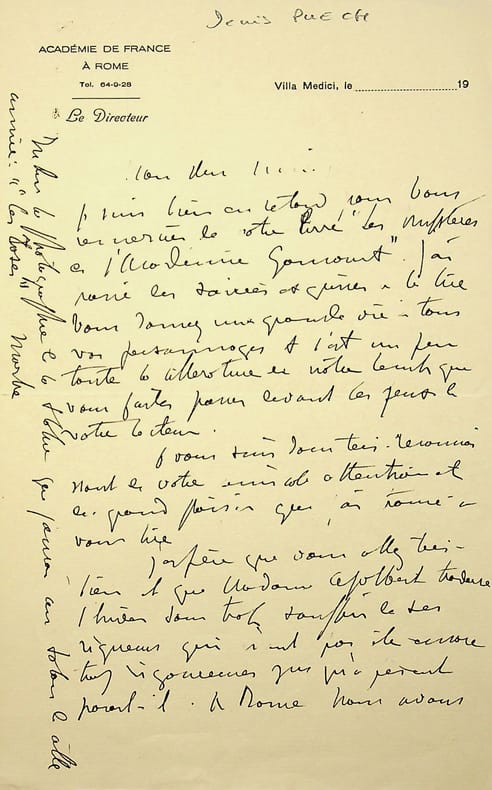 Denis PUECH
ACADÉMIE DE FRANCE
À ROME
Tel. 64-9-28
Le Directeur
Villa Medici, le 19
Mon cher
Je suis bien en retard pour vous
remercier de votre livre "Les mystères
de l'Académie Goncourt". J'ai
passé des soirées exquises à le lire
Vous donnez une grande vie à tous
vos personnages et c'est un peu
toute la littérature de notre temps que
vous faites passer devant les yeux de
votre lecteur.
Je vous suis donc très reconnais
sant de votre amicale attention et
du grand plaisir que j'ai trouvé à
vous lire
J'espère que vous allez très
bien et que Madame traverse
l'hiver sans trop souffrir de ses
rigueurs qui n'ont pas été encore
trop rigoureuses jusqu'à présent
paraît-il. A Rome nous avons
la photographie de la statue que j'aurai au Salon de cette
année: "Les Roses" Marbre